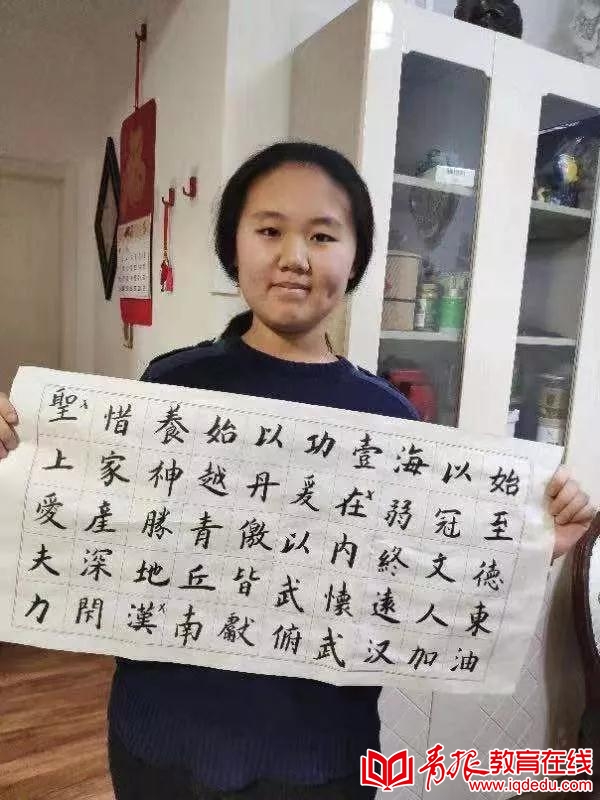 聖惜養始以功壹海以始
上家神越丹爰在弱冠至
愛產勝青儌以內終文德
夫深地丘皆武懷遠人東
力漢南獻俯武汉加油
青报教育在线
www.iqdedu.com